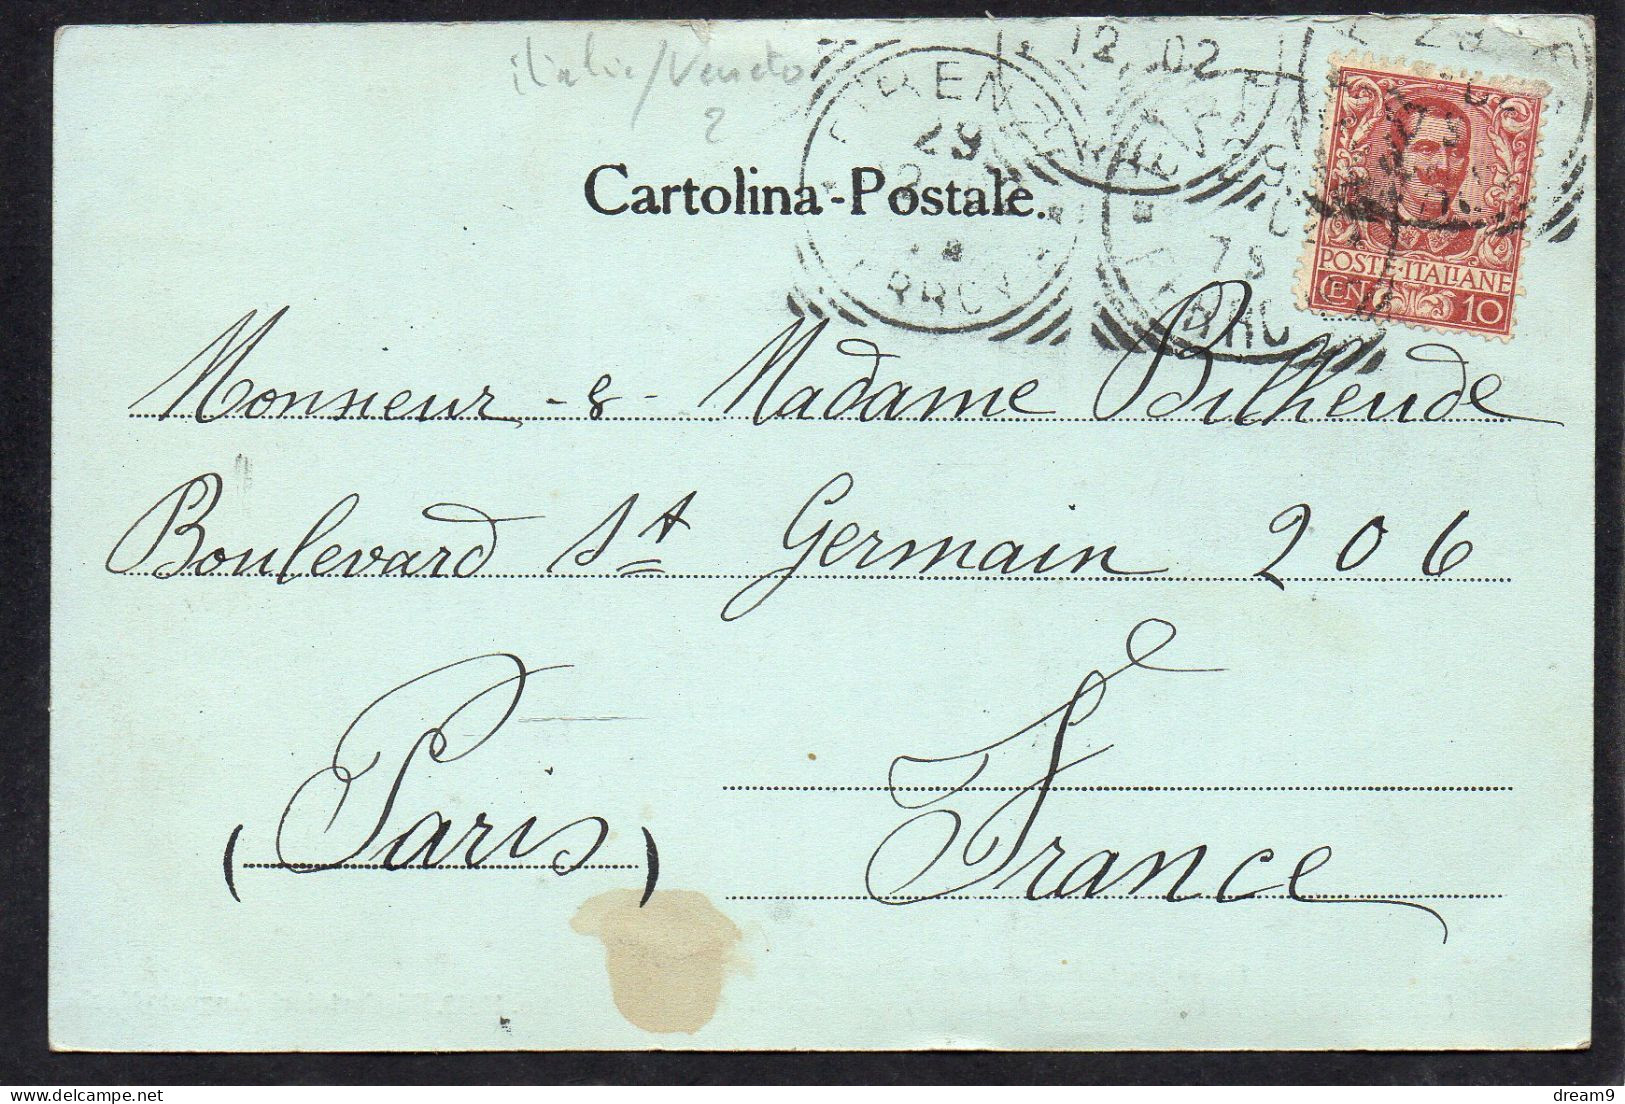 italie/Veneto
?
12.02
FIRENZE
29
Cartolina-Postale.
75
POSTE·ITALIANE
CEN 10
Monsieur - & - Madame Bilheude
Boulevard St Germain 206
(Paris)
France
dream9